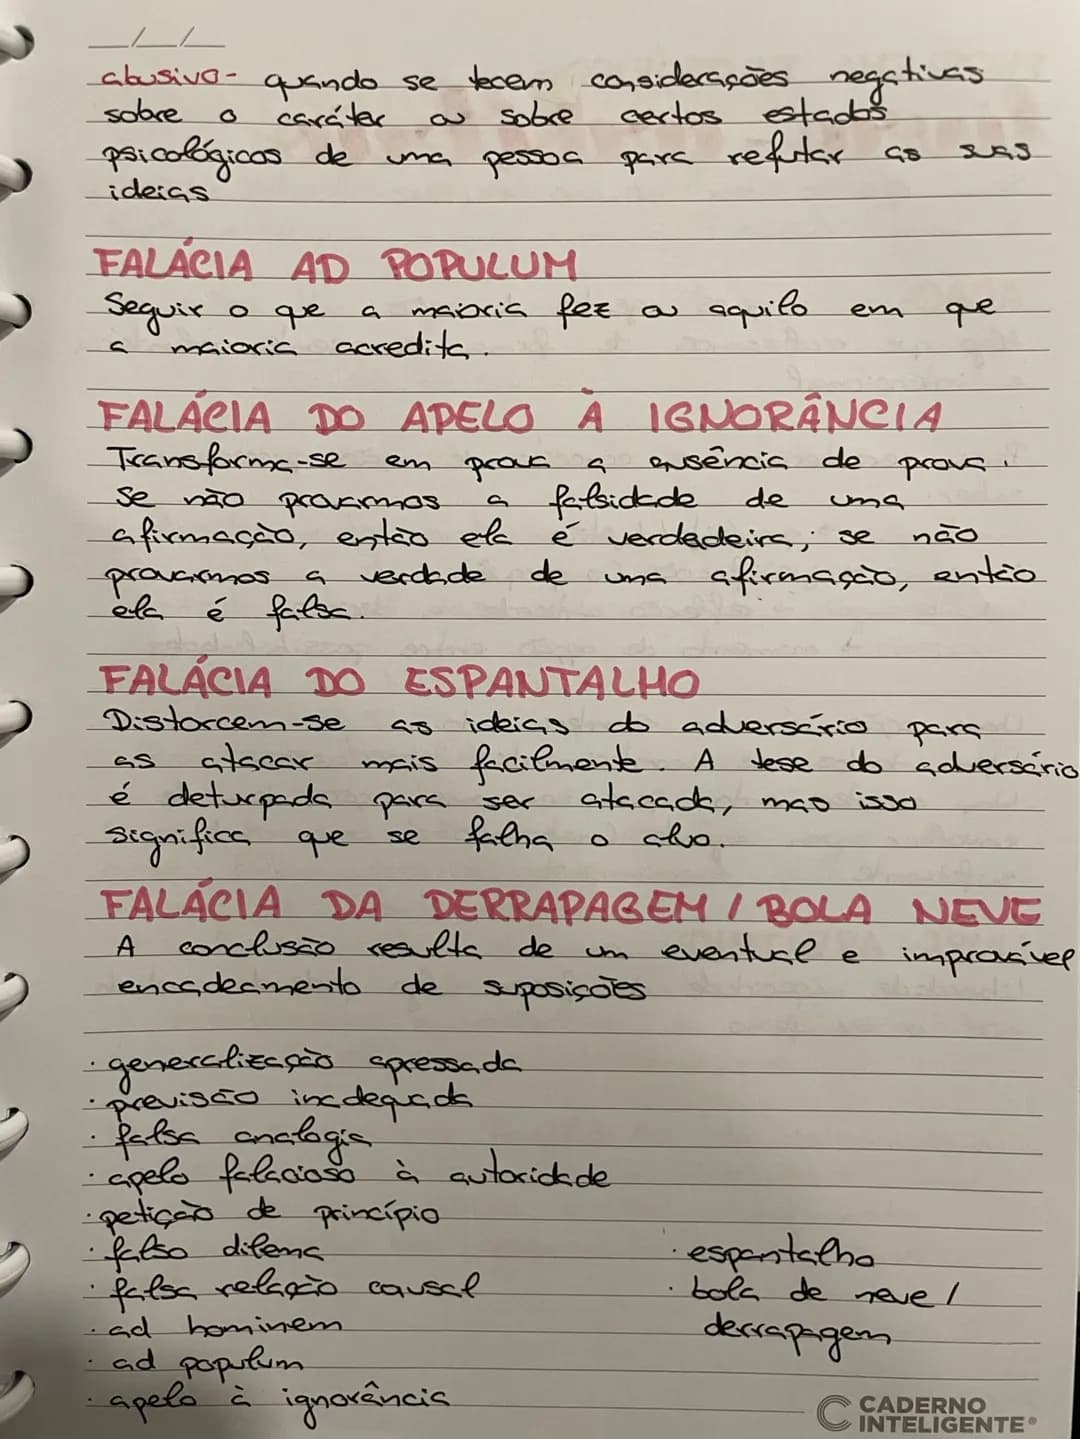 abusivo- quando se tecem considerações negativas
sobre o caráter ou sobre certos estados
psicológicos de uma pessoa para refutar as suas
ideias
FALÁCIA AD POPULUM
Seguir o que a maioria fez ou aquilo em que
a maioria acredita.
FALÁCIA DO APELO À IGNORÂNCIA
Transforma-se em prova a ausência de prova.
Se não provarmos a falsidade de uma
afirmação, então ela é verdadeira; se não
provarmos a verdade de uma afirmação, então
ela é falsa.
FALÁCIA DO ESPANTALHO
Distorcem-se as ideias do adversário para
as atacar mais facilmente. A tese do adversário
é deturpada para ser atacada, mas isso
significa que se falha o alvo.
FALÁCIA DA DERRAPAGEM / BOLA NEVE
A conclusão resulta de um eventual e improvável
encadeamento de suposições
· generalização apressada
· previsão inadequada
· falsa analogia
· apelo falacioso à autoridade
· petição de princípio
· falso dilema
· falsa relação causal
· ad hominem
· ad populum
· apelo à ignorância
· espantalho
· bola de neve /
derrapagem
CADERNO
INTELIGENTE®